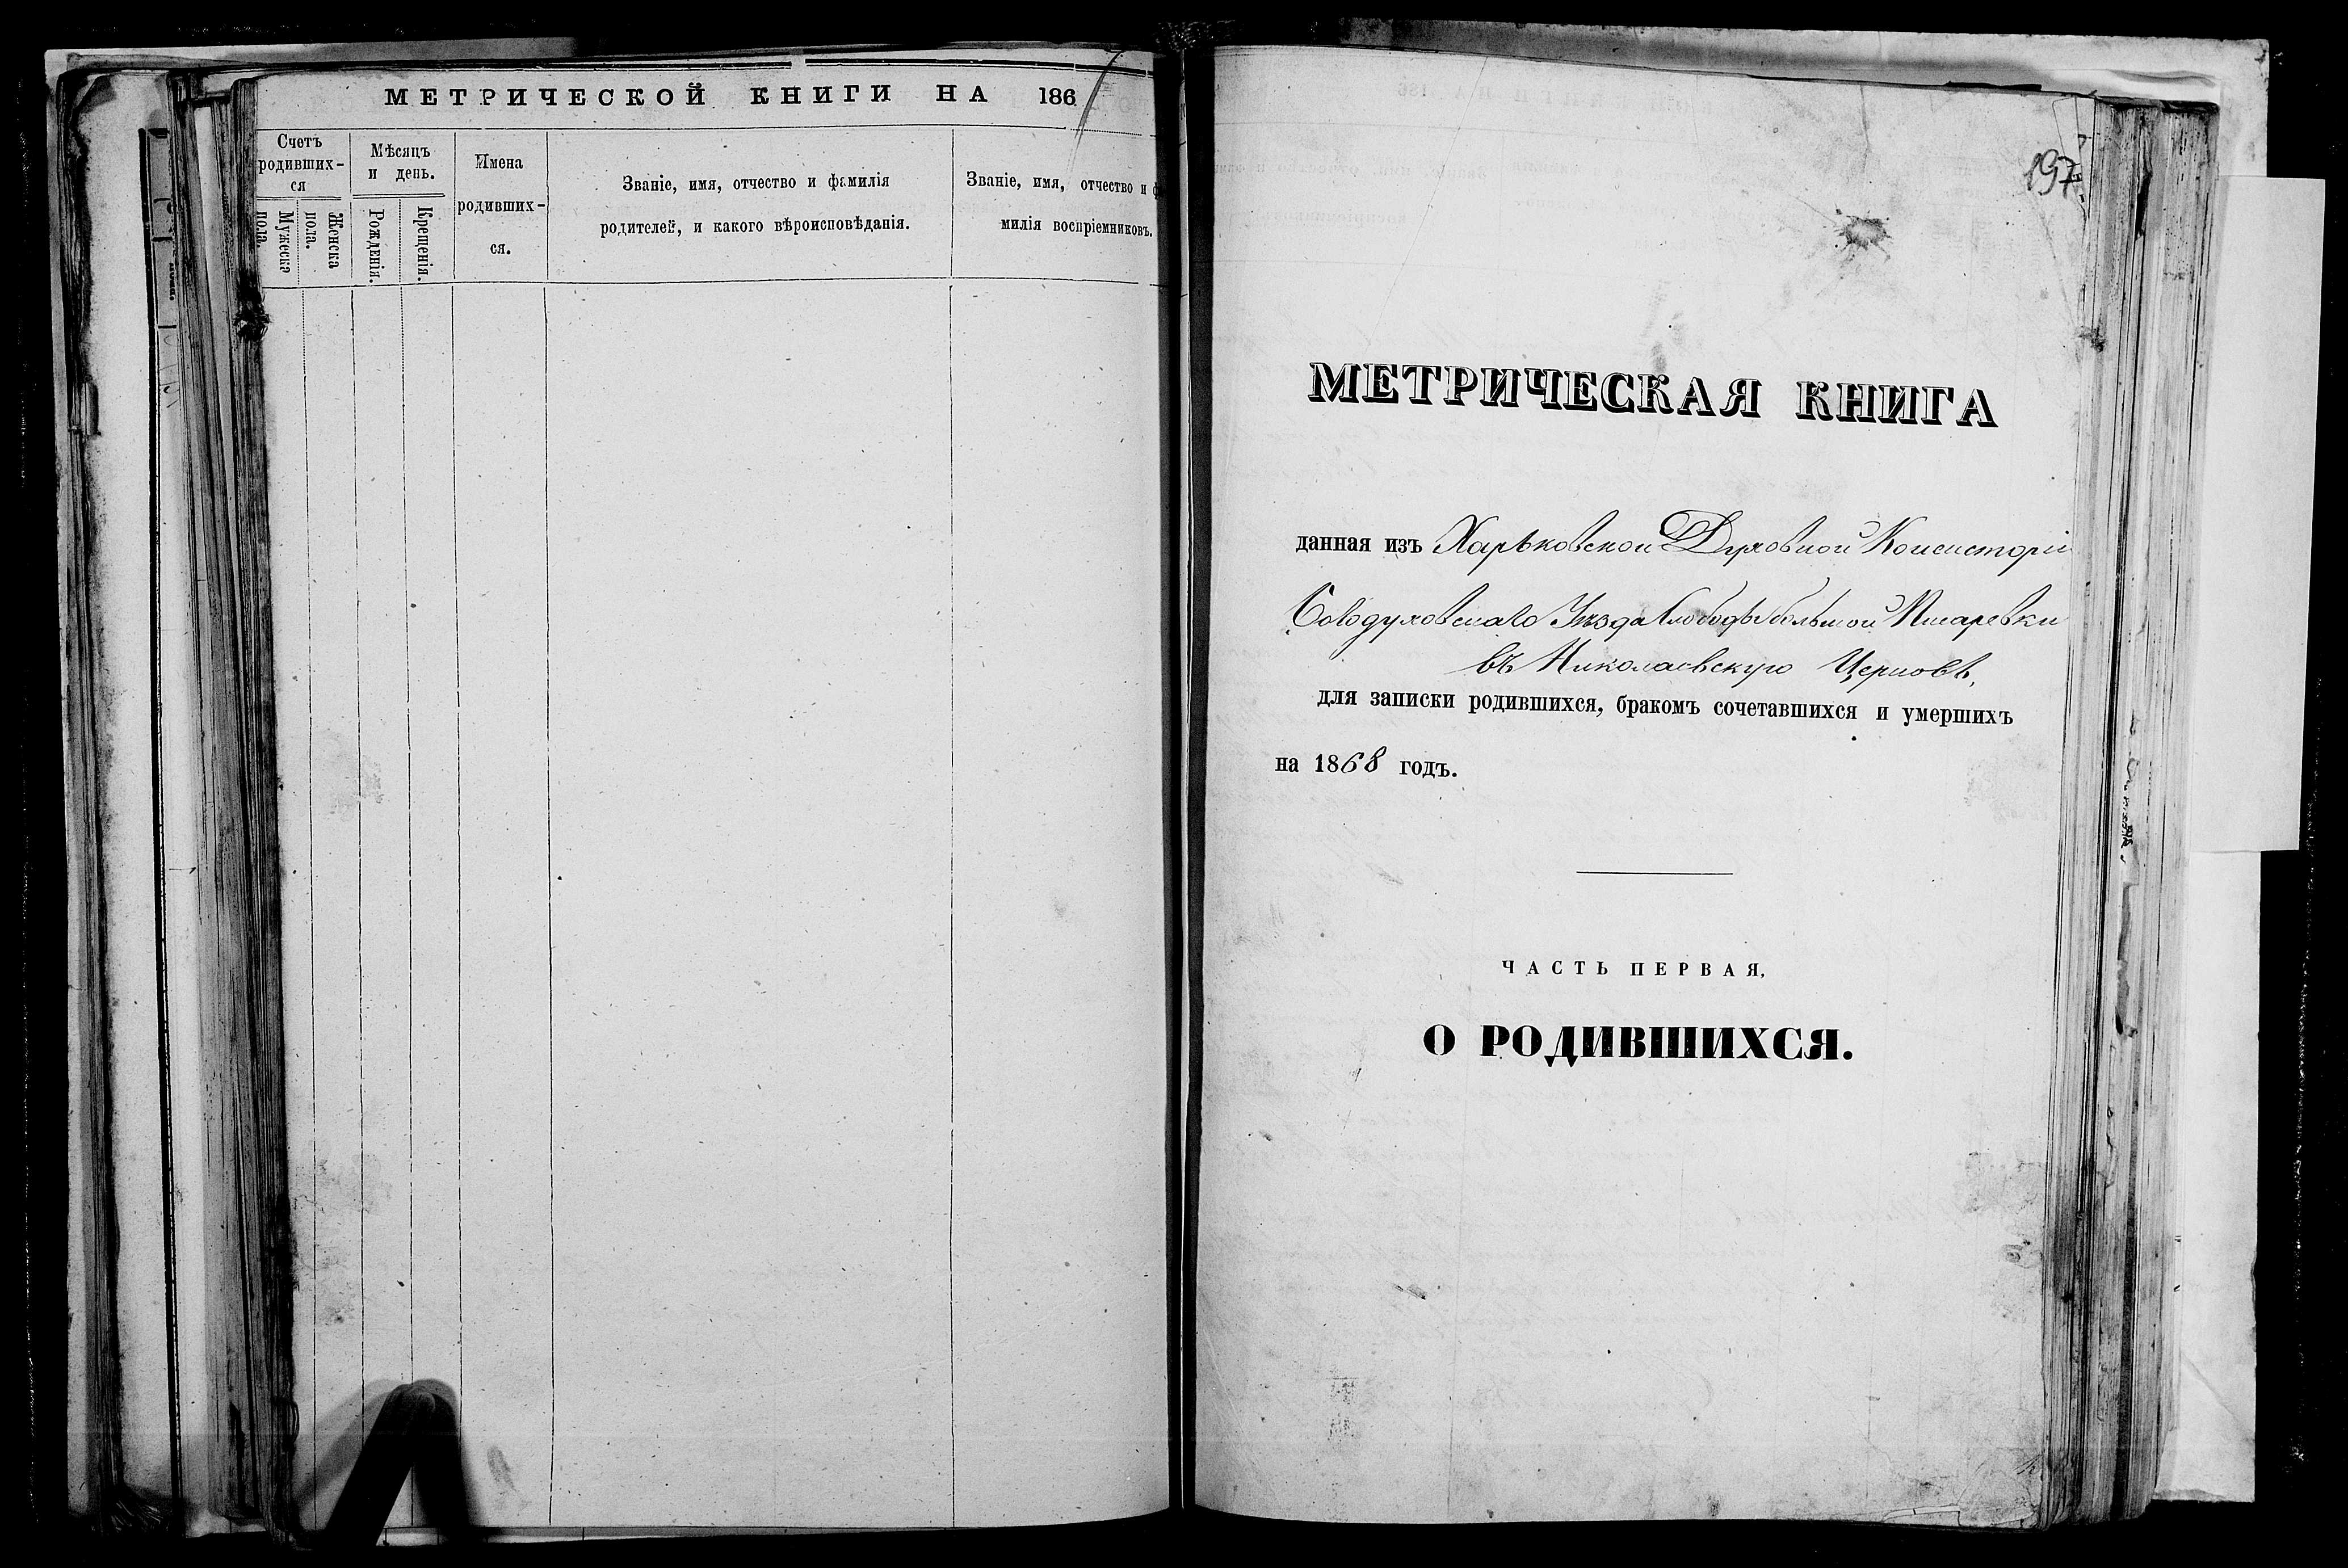 МЕТРИЧЕСКОЙ КНИГИ НА 186
Счетъ
родивших-
ся
Мужеска
пола.
Женска
пола.
Мѣсяцъ
и день.
Рожденія.
Крещенія.
Имена
родивших-
ся.
Званіе, имя, отчество и фамилія
родителей, и какого вѣроисповѣданія.
Званіе, имя, отчество и ф
милія воспріемниковъ.
197
МЕТРИЧЕСКАЯ КНИГА
данная изъ Харьковской Духовной Консисторіи
Богодуховскаго Уѣзда Слободы большой Писаревки
въ Николаевскую Церковь,
для записки родившихся, бракомъ сочетавшихся и умершихъ
на 1868 годъ.
ЧАСТЬ ПЕРВАЯ,
О РОДИВШИХСЯ.